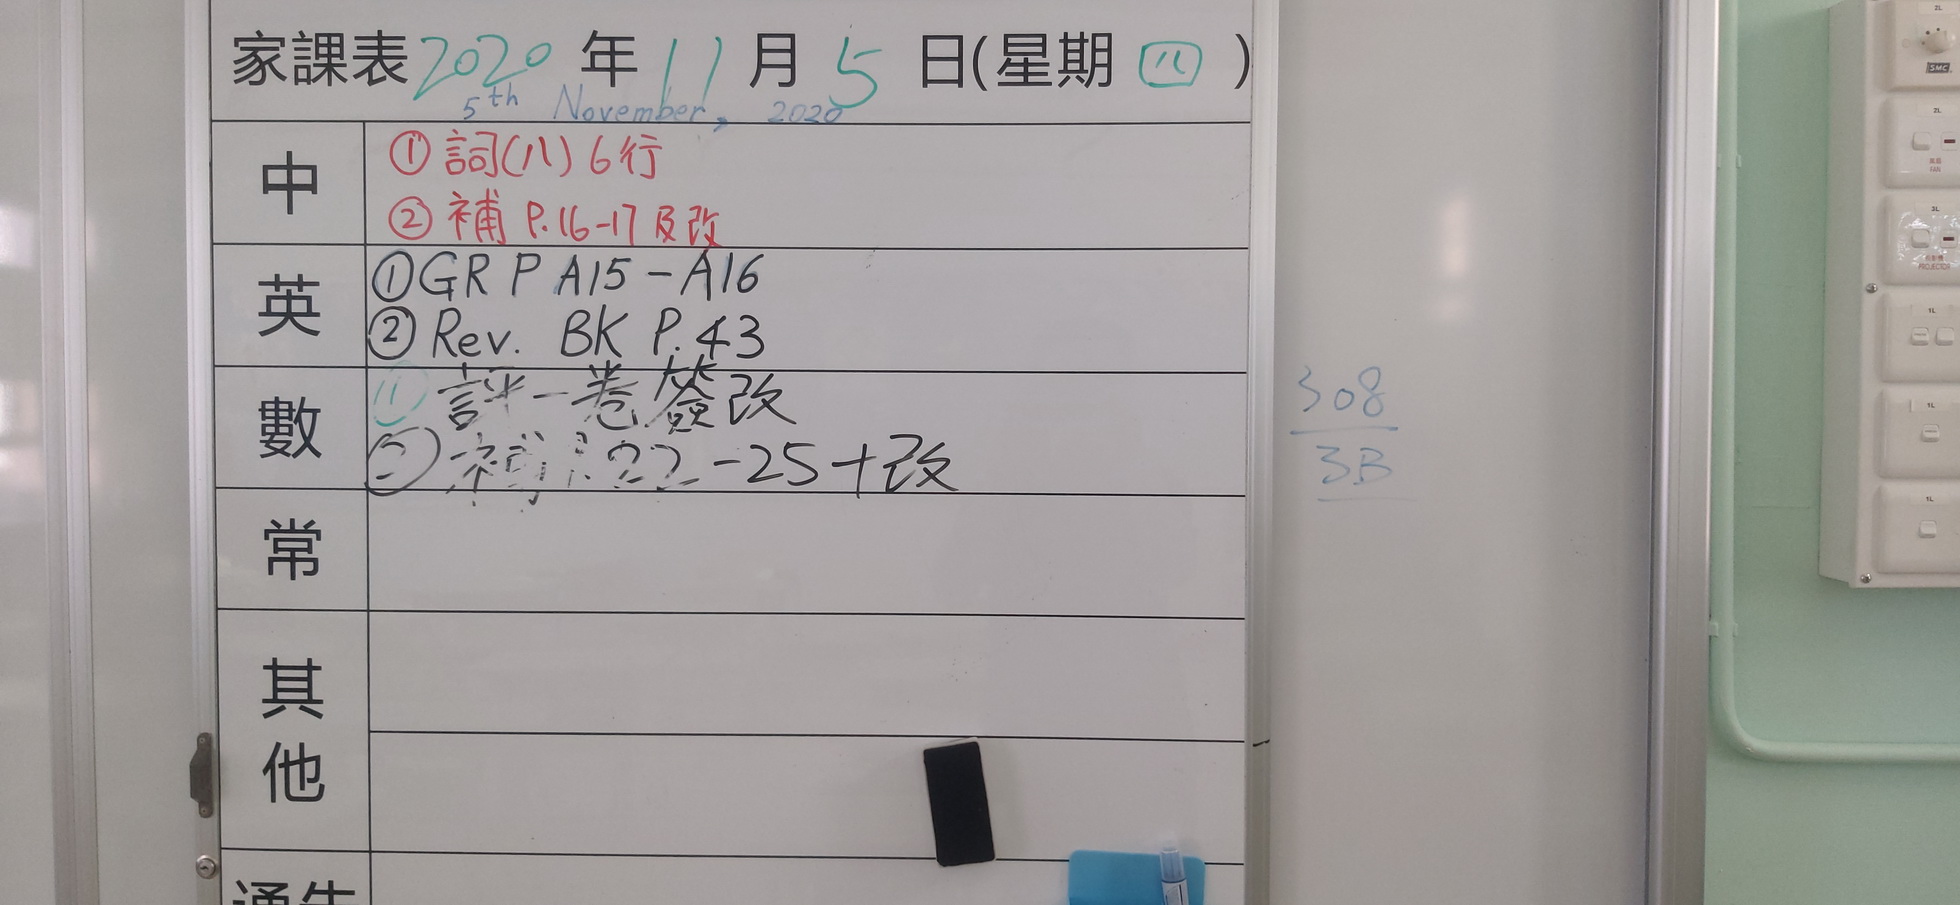 家課表 2020 年 11 月 5 日(星期 四 )
5th November, 2020
中
① 詞(八) 6行
② 補 P.16-17 及改
英
① GR P A15 - A16
② Rev. BK P.43
數
① 評一卷簽改
② 補 22-25+改
常
其他
通告
308
3B
SMC
2L
2L
風扇
FAN
3L
投影機
PROJECTOR
1L
1L
1L